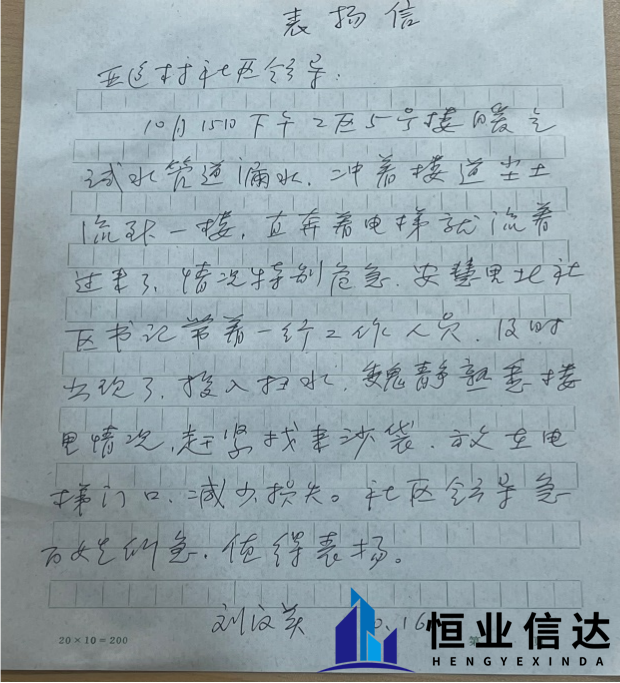 表扬信
亚运村社区领导:
10月15日下午2区5号楼暖气
试水管道漏水.冲着楼道尘土
流到一楼,直奔着电梯就流着
过来了,情况特别危急.安慧里北社
区书记带着一行工作人员.及时
出现了,投入扫水.魏静熟悉楼
里情况,赶紧找来沙袋.放在电
梯门口.减少损失。社区领导急
百姓所急.值得表扬。
刘文英 0.16
20×10=200 第
恒业信达
HENGYEXINDA